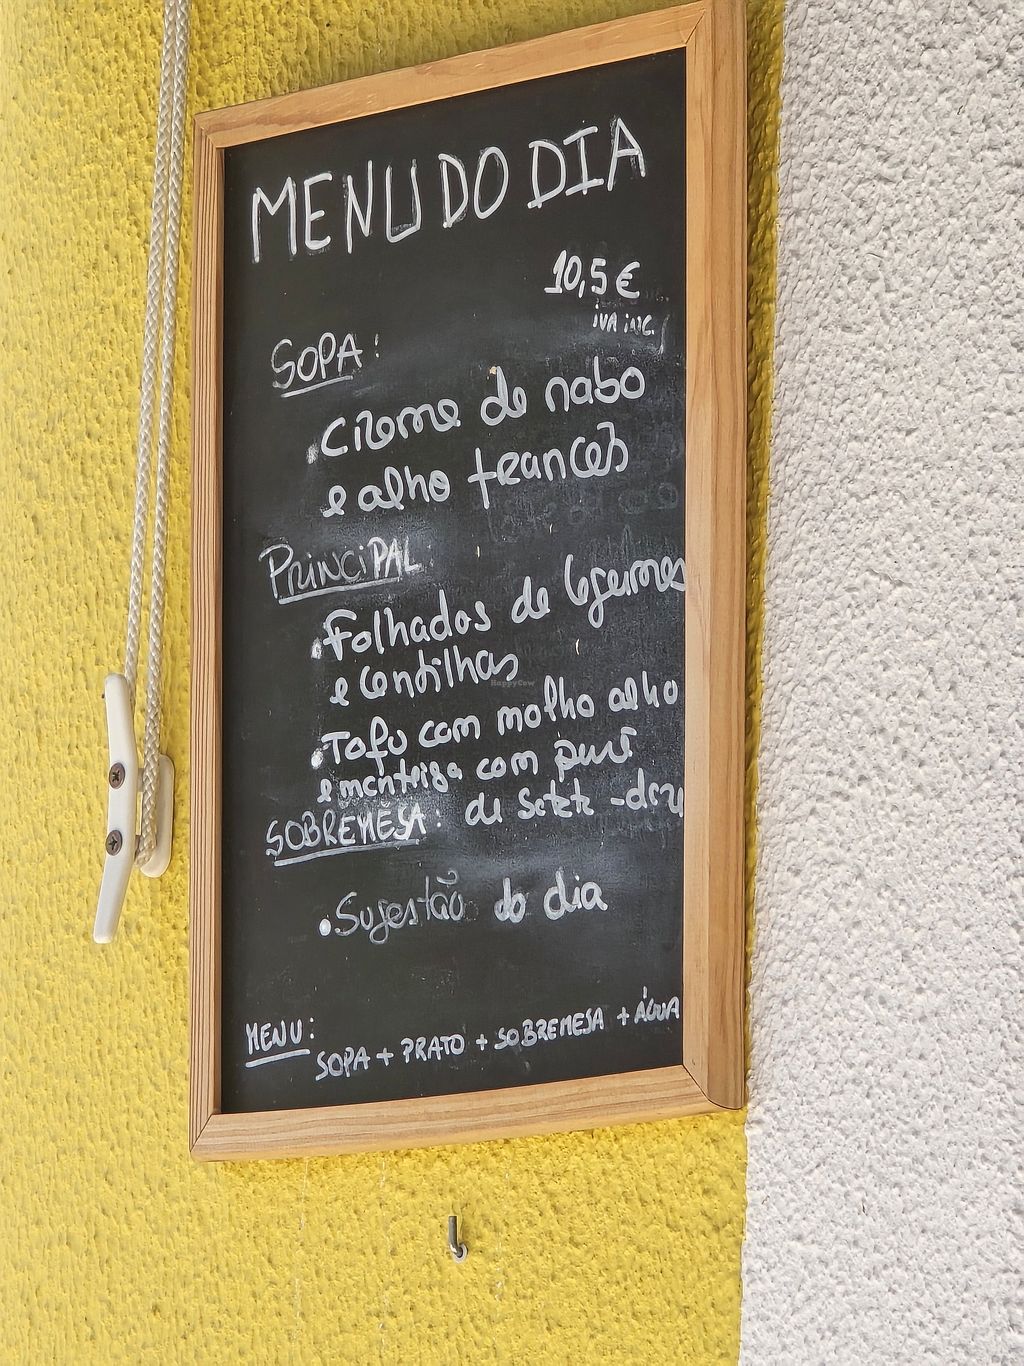 MENU DO DIA
10,5€
IVA INC.
SOPA:
• Creme de nabo
e alho francês
PRINCIPAL:
• Folhados de legumes
e lentilhas
• Tofu com molho alho
e manteiga com puré
SOBREMESA: de batata-doce
• Sugestão do dia
MENU:
SOPA + PRATO + SOBREMESA + ÁGUA
HappyCow